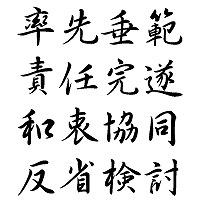 率先垂範
責任完遂
和衷協同
反省検討